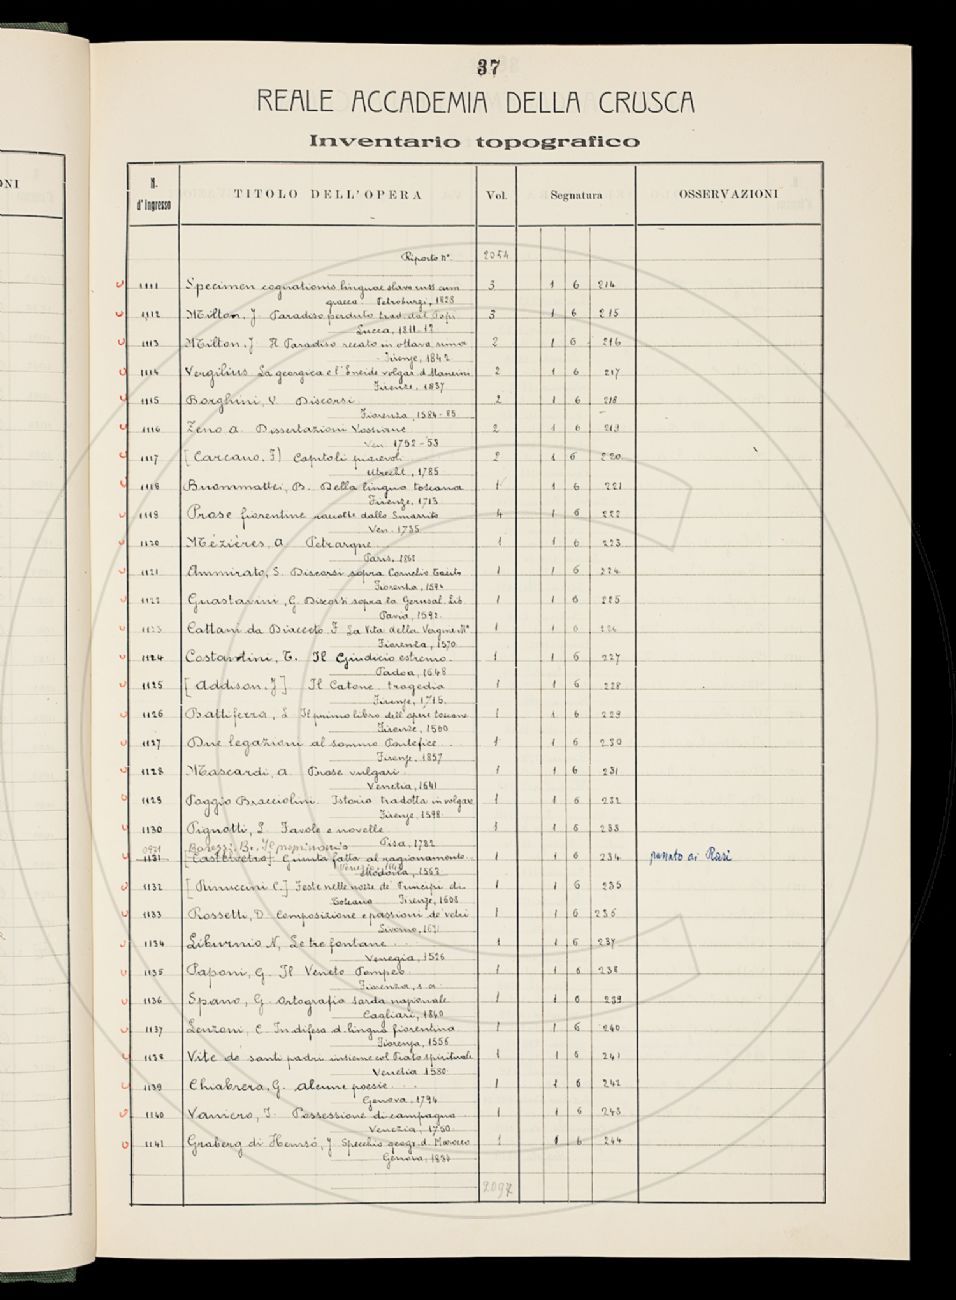 ONI
37
REALE ACCADEMIA DELLA CRUSCA
Inventario topografico
N. d'Ingresso TITOLO DELL'OPERA Vol. Segnatura OSSERVAZIONI
Riporto n° 2054
1111 Specimen cognationis linguae slavo russ cum 3 1 6 214
graeca. Petroburgi, 1828
1112 Milton, J. Paradiso perduto trad. dal Papi 3 1 6 215
Lucca, 1811-12
1113 Milton, J. Il Paradiso recato in ottava rima 2 1 6 216
Firenze, 1842
1114 Vergilius La georgica e l'Eneide volgar. d. Mancini 2 1 6 217
Firenze, 1837
1115 Borghini, V. Discorsi 2 1 6 218
Fiorenza, 1584-85
1116 Zeno A. Dissertazioni Vossiane 2 1 6 219
Ven. 1752-53
1117 [Carcano, F] Capitoli piacevoli 2 1 6 220
Utrecht, 1785
1118 Buommattei, B. Della lingua toscana 1 1 6 221
Firenze, 1713
1119 Prose fiorentine raccolte dallo Smarrito 4 1 6 222
Ven. 1735
1120 Mézières, A. Petrarque 1 1 6 223
Paris, 1868
1121 Ammirato, S. Discorsi sopra Cornelio Tacito 1 1 6 224
Fiorenza, 1594
1122 Guastavini, G. Discorsi sopra la Gerusal. Lib. 1 1 6 225
Pavia, 1592
1123 Cattani da Diacceto. F. La Vita della Vergine Mª 1 1 6 226
Fiorenza, 1570
1124 Costantini, T. Il Giudicio estremo. 1 1 6 227
Padoa, 1648
1125 [Addison, J] Il Catone. tragedia 1 1 6 228
Firenze, 1715
1126 Battiferra, L. Il primo libro dell'opere toscane 1 1 6 229
Firenze, 1560
1127 Due legazioni al sommo Pontefice 1 1 6 230
Firenze, 1857
1128 Mascardi, A. Prose vulgari 1 1 6 231
Venetia, 1641
1129 Poggio Bracciolini. Istoria tradotta in volgare 1 1 6 232
Firenze, 1598
1130 Pignotti, L. Favole e novelle 1 1 6 233
Pisa, 1782
0971 Barezzi, B. Il proprinomio
1131 [Castelvetro] Giunta fatta al ragionamento 1 1 6 234 passato ai Rari
Venezia, 1643
Modona, 1563
1132 [Rinuccini C.] Feste nelle nozze de' Principi di 1 1 6 235
Toscana Firenze, 1608
1133 Rossetti, D. Composizione e passioni de' vetri 1 1 6 236
Livorno, 1671
1134 Liburnio N, Le tre fontane 1 1 6 237
Venegia, 1526
1135 Paponi, G. Il Veneto Pompeo 1 1 6 238
Fiorenza, s.a.
1136 Spano, G. Ortografia sarda nazionale 1 1 6 239
Cagliari, 1840
1137 Lenzoni, C. In difesa d. lingua fiorentina 1 1 6 240
Fiorenza, 1556
1138 Vite de' santi padri insieme col Prato spirituale 1 1 6 241
Venetia 1580
1139 Chiabrera, G. Alcune poesie 1 1 6 242
Genova, 1794
1140 Vaniero, J. Possessione di campagna 1 1 6 243
Venezia, 1750
1141 Graberg di Hemsö, J. Specchio geogr. d. Marocco 1 1 6 244
Genova, 1834
2097